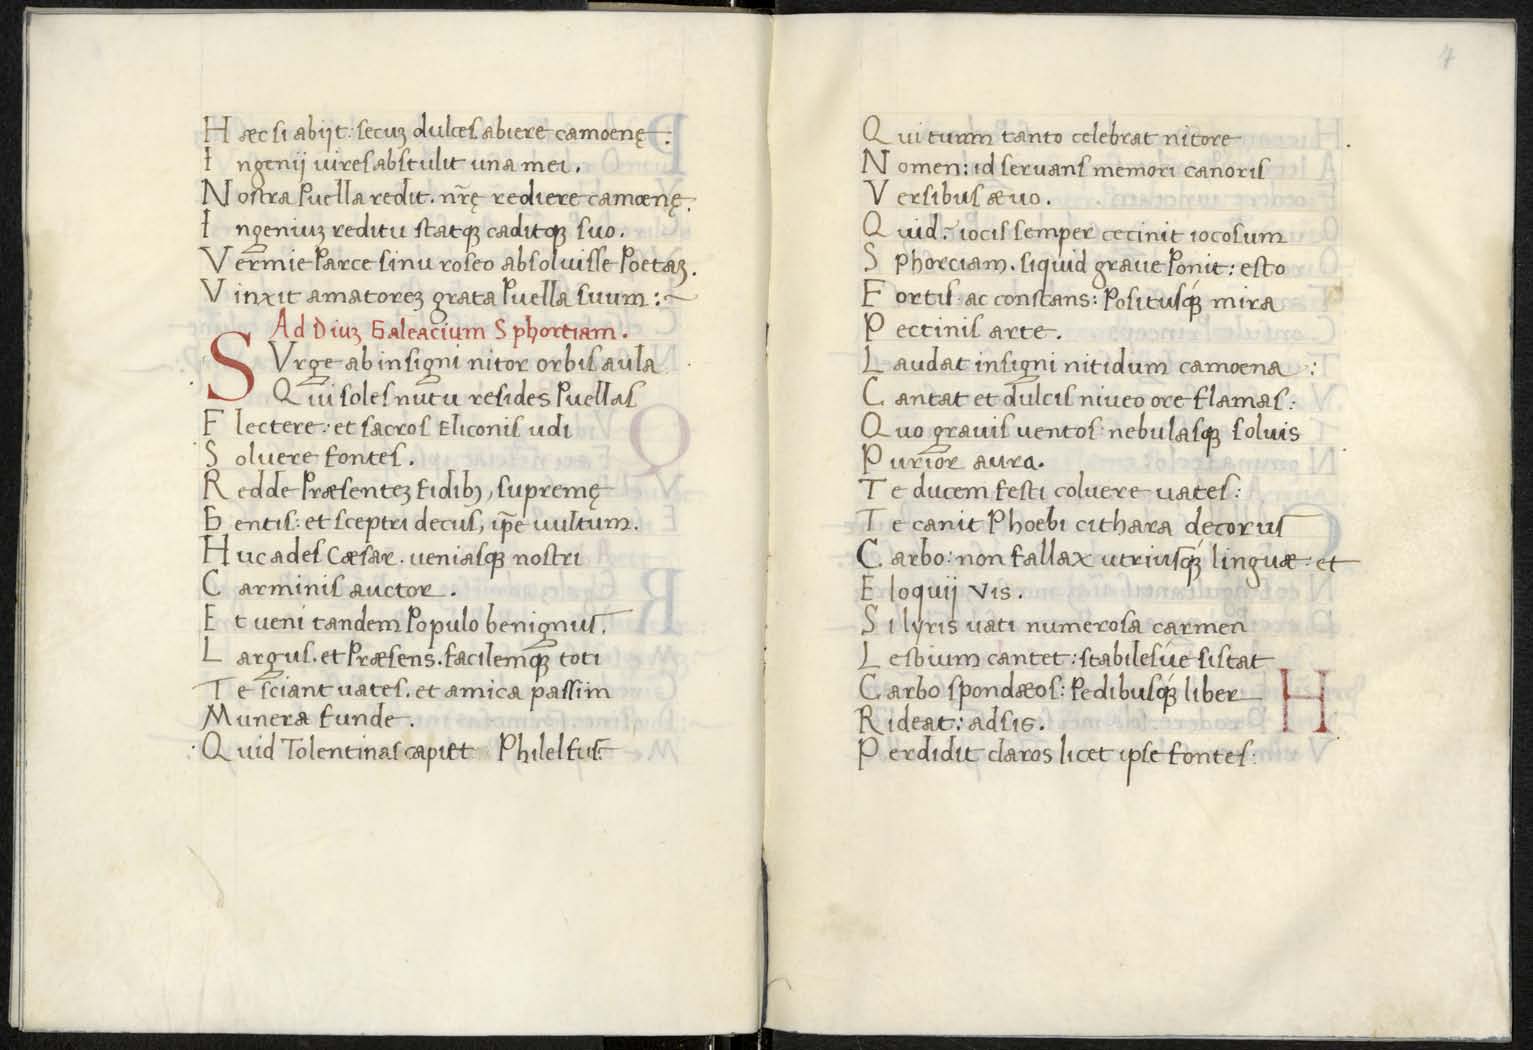 Hæc si abijt: secuz dulces abiere camoenę:
Ingenij uires abstulit una mei.
Nostra Puella redit. nr̃ę rediere camœnę.
Ingeniuz reditu statqꝫ caditqꝫ suo.
Vermie Parce sinu roseo absoluisse Poetaz.
Vinxit amatorez grata Puella suum:~
Ad Diuz Galeacium Sphortiam.
SVrge ab insigni nitor orbis aula
Qui soles nutu resides Puellas
Flectere: et sacros Eliconis udi
Soluere fontes.
Redde Præsentez fidibꝫ, supremę
Gentis: et sceptri decus, ip̃e uultum.
Huc ades Cæsar. ueniasqꝫ nostri
Carminis auctor.
Et ueni tandem Populo benignus.
Largus. et Præsens. facilemqꝫ toti
Te sciant uates. et amica passim
Munera funde.
Quid Tolentinas capiet Philelfus:
4
Qui tuum tanto celebrat nitore
Nomen: id seruans memori canoris
Versibus æuo.
Quid: iocis semper cecinit iocosum
Sphorciam. siquid graue Ponit: esto
Fortis ac constans: Positusqꝫ́ mira
Pectinis arte.
Laudat insigni nitidum camoena:
Cantat et dulcis niueo ore flamas:
Quo grauis uentos nebulasqꝫ soluis
Purior aura.
Te ducem festi coluere uates:
Te canit Phoebi cithara decorus
Carbo: non fallax utriusqꝫ́ linguæ. et
Eloquij vis.
Si lyris uati numerosa carmen
Lesbium cantet: stabilesúe sistat
Carbo spondæos: Pedibusqꝫ́ liber
Rideat: adsis.
Perdidit claros licet ipse fontes: